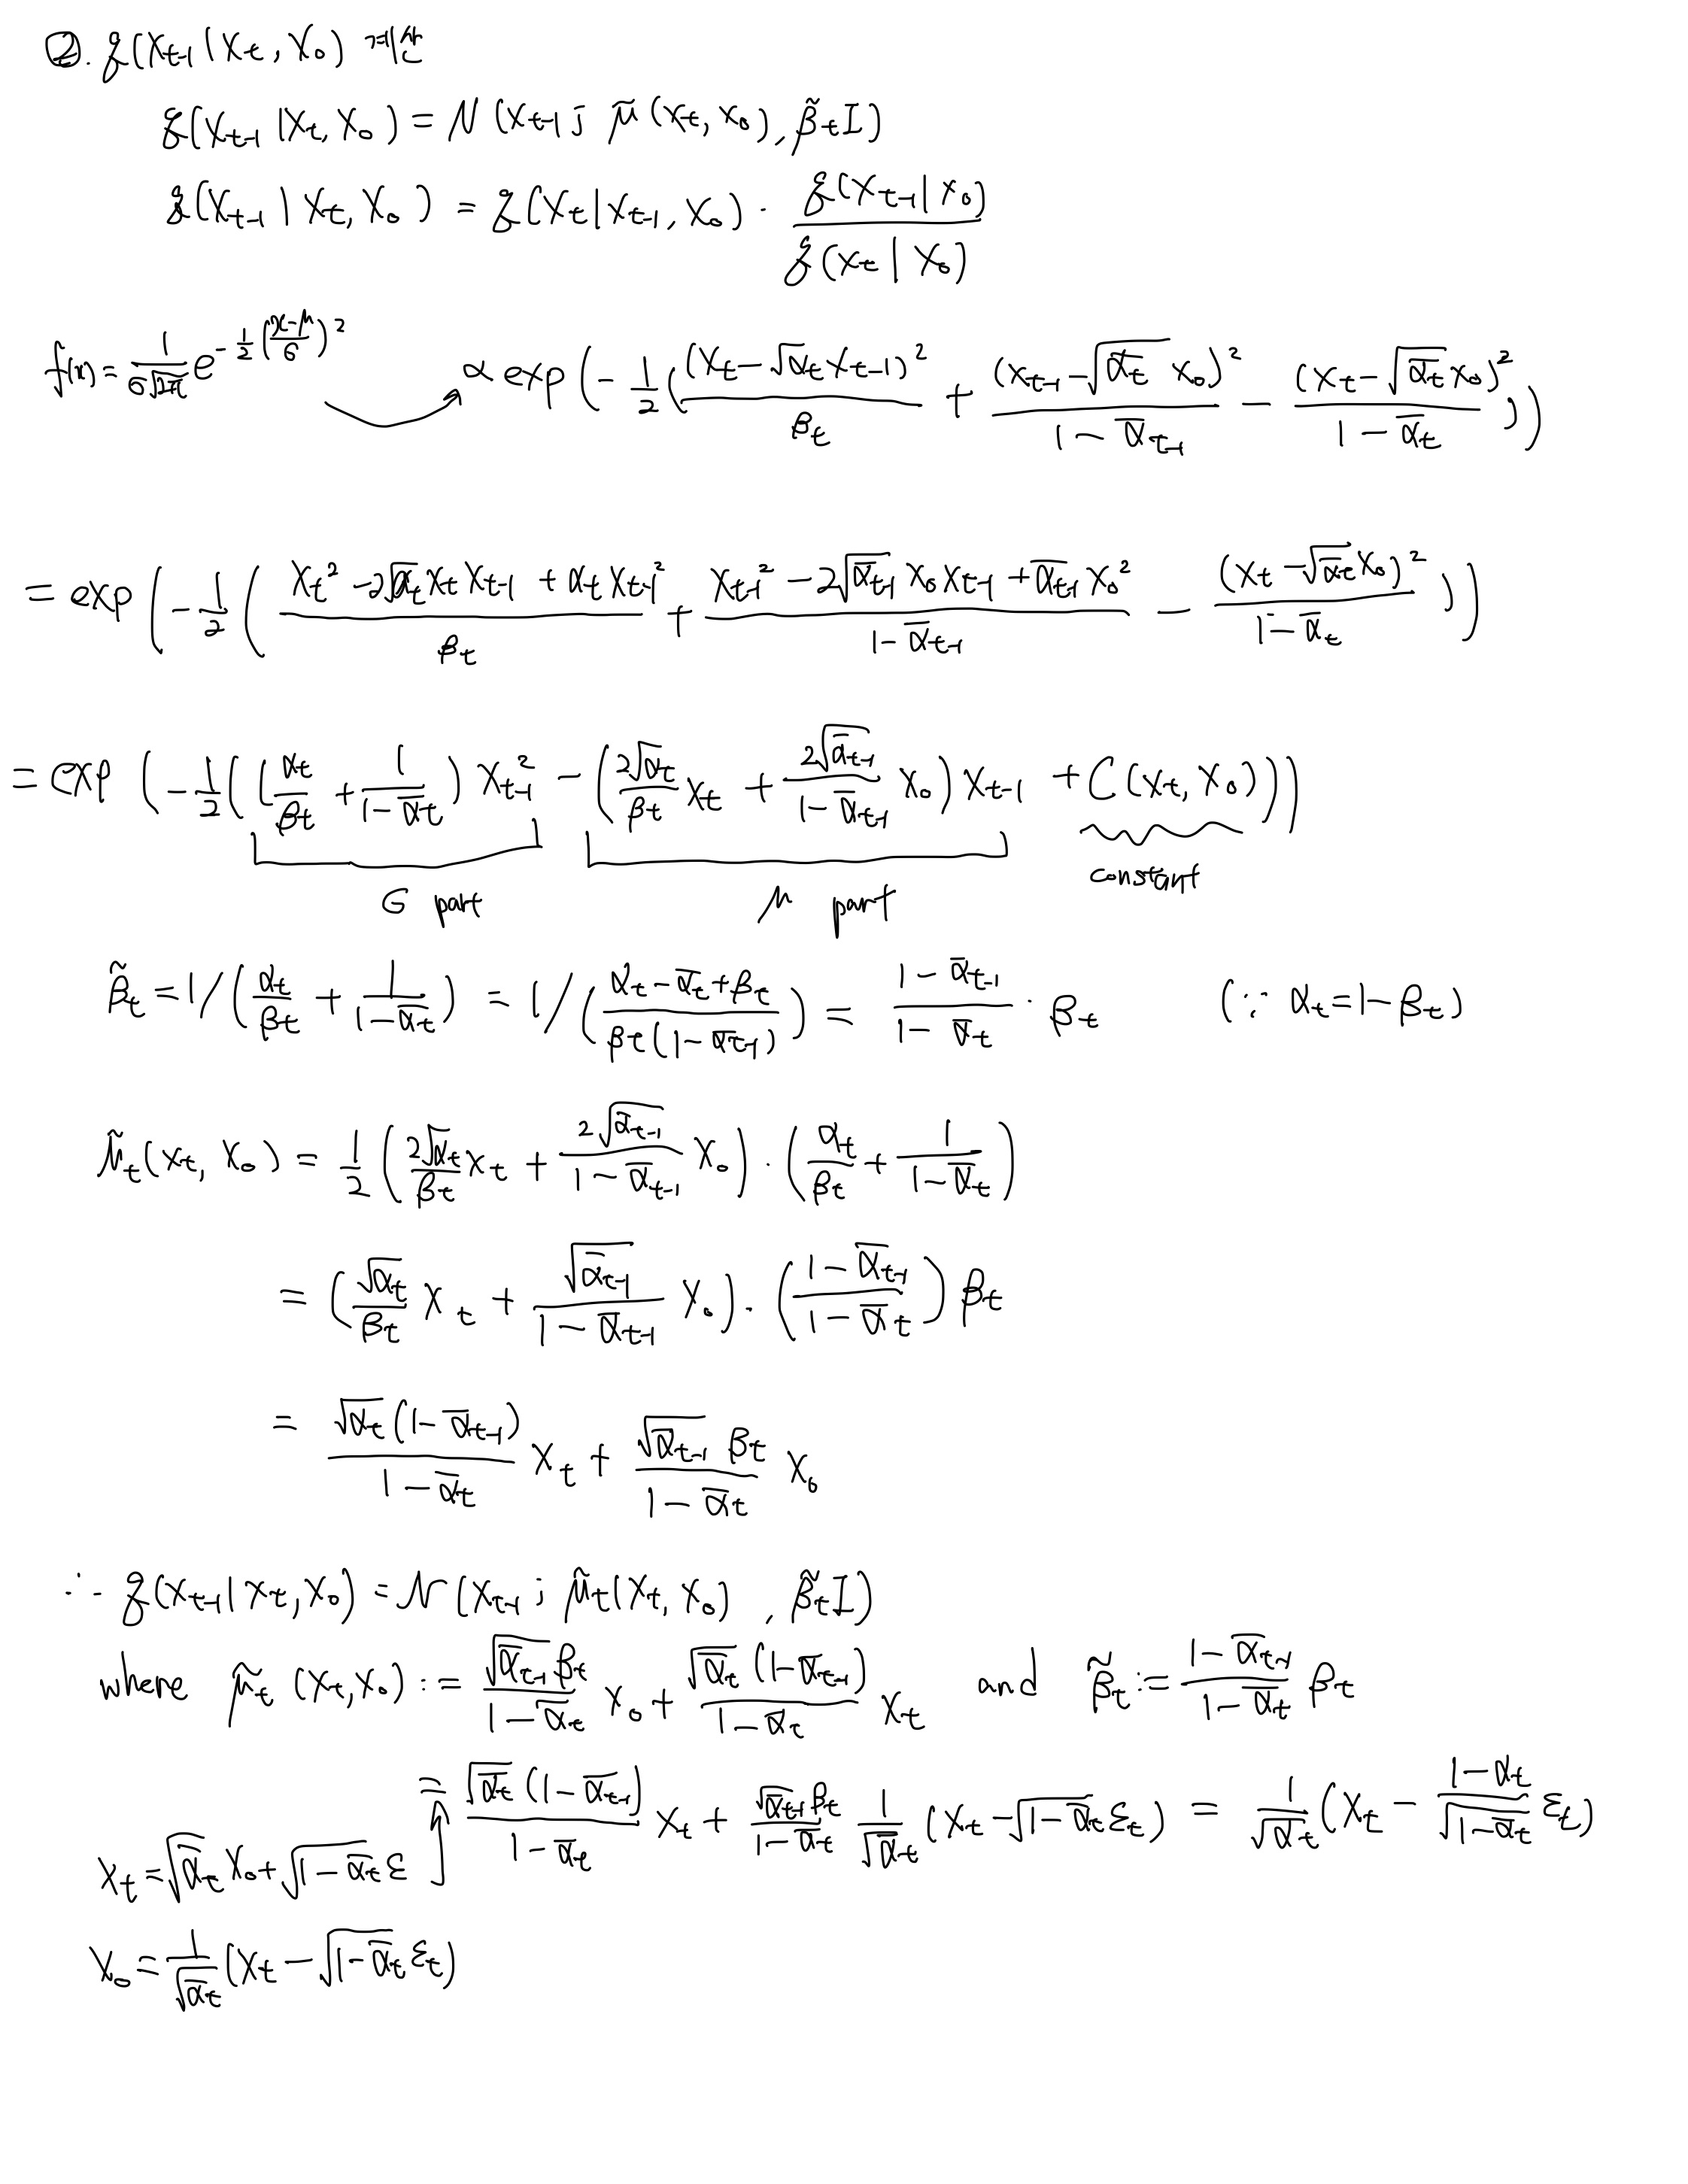 ②. q(x_{t-1} | x_t, x_0) 계산
q(x_{t-1} | x_t, x_0) = N(x_{t-1}; μ̃(x_t, x_0), β̃_t I)
q(x_{t-1} | x_t, x_0) = q(x_t | x_{t-1}, x_0) · \frac{q(x_{t-1} | x_0)}{q(x_t | x_0)}
f(x) = \frac{1}{σ√(2π)} e^{-\frac{1}{2}(\frac{x-μ}{σ})^2} ∝ exp(-\frac{1}{2}(\frac{(x_t - √α_t x_{t-1})^2}{β_t} + \frac{(x_{t-1} - √ᾱ_t x_0)^2}{1 - ᾱ_{t-1}} - \frac{(x_t - √ᾱ_t x_0)^2}{1 - ᾱ_t}))
= exp(-\frac{1}{2}(\frac{x_t^2 - 2√α_t x_t x_{t-1} + α_t x_{t-1}^2}{β_t} + \frac{x_{t-1}^2 - 2√ᾱ_{t-1} x_0 x_{t-1} + ᾱ_{t-1} x_0^2}{1 - ᾱ_{t-1}} - \frac{(x_t - √ᾱ_t x_0)^2}{1 - ᾱ_t}))
= exp(-\frac{1}{2}((\frac{α_t}{β_t} + \frac{1}{1 - ᾱ_t}) x_{t-1}^2 - (\frac{2√α_t}{β_t} x_t + \frac{2√ᾱ_{t-1}}{1 - ᾱ_{t-1}} x_0) x_{t-1} + C(x_t, x_0)))
σ part μ part constant
β̃_t = 1/(\frac{α_t}{β_t} + \frac{1}{1 - ᾱ_t}) = 1/(\frac{α_t - ᾱ_t + β_t}{β_t(1 - ᾱ_{t-1})}) = \frac{1 - ᾱ_{t-1}}{1 - ᾱ_t} · β_t (∵ α_t = 1 - β_t)
μ̃_t(x_t, x_0) = \frac{1}{2}(\frac{2√α_t}{β_t} x_t + \frac{2√ᾱ_{t-1}}{1 - ᾱ_{t-1}} x_0) · (\frac{α_t}{β_t} + \frac{1}{1 - ᾱ_t})
= (\frac{√α_t}{β_t} x_t + \frac{√ᾱ_{t-1}}{1 - ᾱ_{t-1}} x_0) · (\frac{1 - ᾱ_{t-1}}{1 - ᾱ_t}) β_t
= \frac{√α_t(1 - ᾱ_{t-1})}{1 - ᾱ_t} x_t + \frac{√ᾱ_{t-1} β_t}{1 - ᾱ_t} x_0
∴ q(x_{t-1} | x_t, x_0) = N(x_{t-1}; μ̃_t(x_t, x_0), β̃_t I)
where μ̃_t(x_t, x_0) := \frac{√ᾱ_{t-1} β_t}{1 - ᾱ_t} x_0 + \frac{√ᾱ_t(1 - ᾱ_{t-1})}{1 - ᾱ_t} x_t and β̃_t := \frac{1 - ᾱ_{t-1}}{1 - ᾱ_t} β_t
= \frac{√ᾱ_t(1 - ᾱ_{t-1})}{1 - ᾱ_t} x_t + \frac{√ᾱ_{t-1} β_t}{1 - ᾱ_t} \frac{1}{√ᾱ_t}(x_t - √(1 - ᾱ_t) ε_t) = \frac{1}{√ᾱ_t}(x_t - \frac{1 - α_t}{√(1 - ᾱ_t)} ε_t)
x_t = √ᾱ_t x_0 + √(1 - ᾱ_t) ε
x_0 = \frac{1}{√ᾱ_t}(x_t - √(1 - ᾱ_t) ε_t)